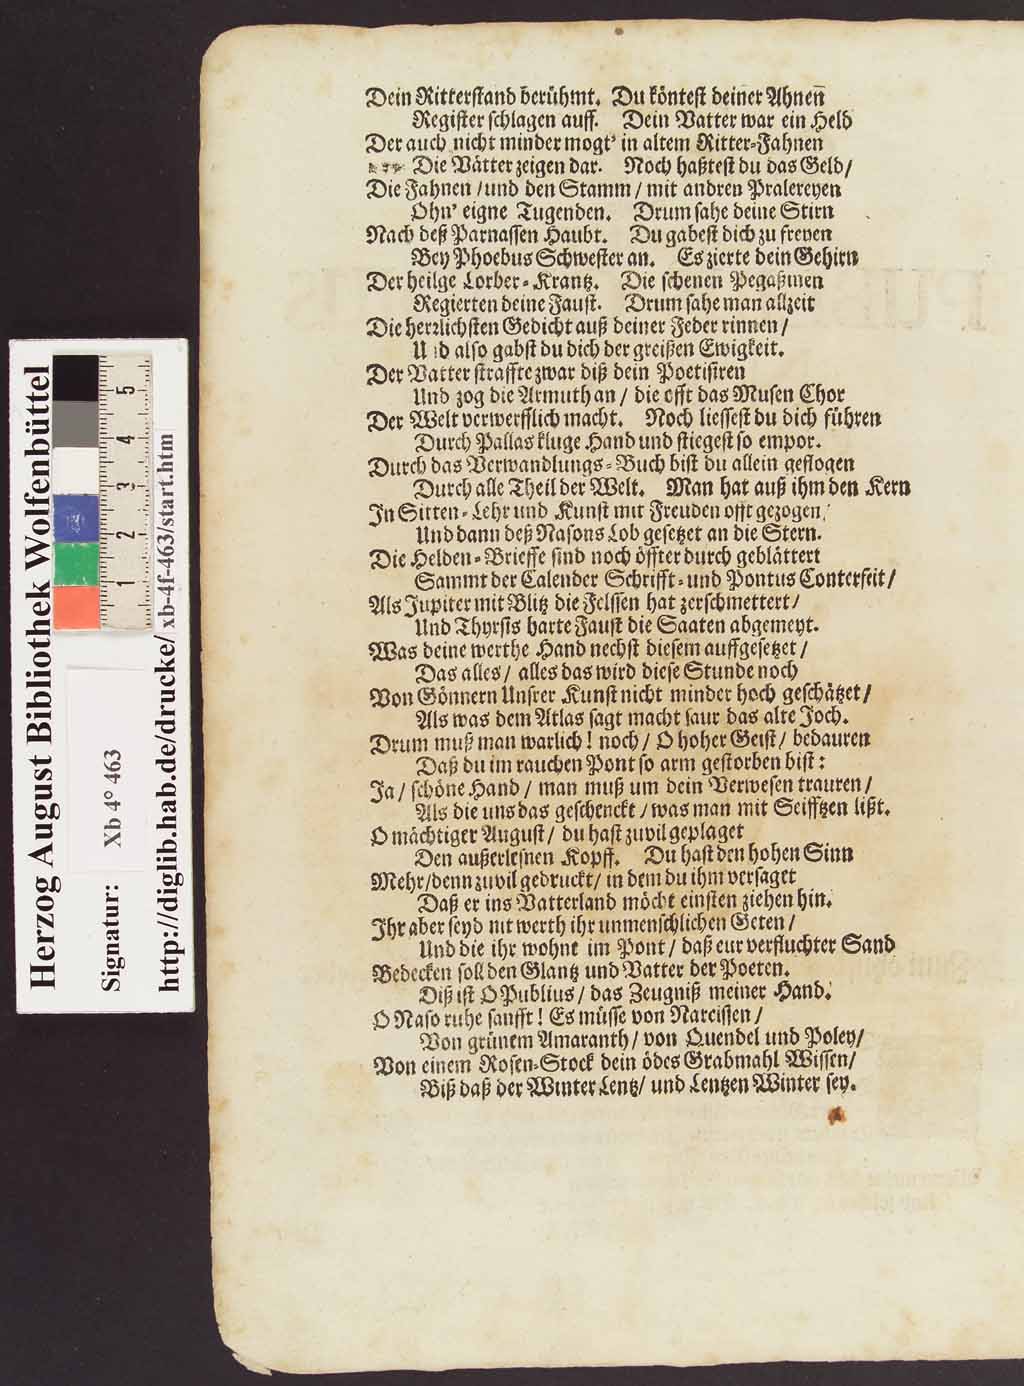 Dein Ritterstand berühmt. Du köntest deiner Ahnen̅
Register schlagen auff. Dein Vatter war ein Held
Der auch nicht minder mogt' in altem Ritter-Fahnen
Die Vätter zeigen dar. Noch haßtest du das Geld/
Die Fahnen /und den Stamm / mit andren Pralereyen
Ohn' eigne Tugenden. Drum sahe deine Stirn
Nach deß Parnassen Haubt. Du gabest dich zu freyen
Bey Phoebus Schwester an. Es zierte dein Gehirn
Der heilge Lorber-Krantz. Die schenen Pegaßinen
Regierten deine Faust. Drum sahe man allzeit
Die herrlichsten Gedicht auß deiner Feder rinnen /
Und also gabst du dich der greißen Ewigkeit.
Der Vatter straffte zwar diß dein Poetisiren
Und zog die Armuth an / die offt das Musen Chor
Der Welt verwerfflich macht. Noch liessest du dich führen
Durch Pallas kluge Hand und stiegest so empor.
Durch das Verwandlungs-Buch bist du allein geflogen
Durch alle Theil der Welt. Man hat auß ihm den Kern
In Sitten-Lehr und Kunst mit Freuden offt gezogen/
Und dann deß Nasons Lob gesetzet an die Stern.
Die Helden-Brieffe sind noch öffter durch geblättert
Sammt der Calender Schrifft-und Pontus Conterfeit/
Als Jupiter mit Blitz die Felssen hat zerschmettert/
Und Thyrsis harte Faust die Saaten abgemeyt.
Was deine werthe Hand nechst diesem auffgesetzet/
Das alles / alles das wird diese Stunde noch
Von Gönnern Unsrer Kunst nicht minder hoch geschätzet/
Als was dem Atlas sagt macht saur das alte Joch.
Drum muß man warlich! noch / O hoher Geist / bedauren
Daß du im rauchen Pont so arm gestorben bist:
Ja / schöne Hand / man muß um dein Verwesen trauren/
Als die uns das geschenckt / was man mit Seifftzen lißt.
O mächtiger August/ du hast zuvil geplaget
Den außerlesnen Kopff. Du hast den hohen Sinn
Mehr/denn zuvil gedruckt/ in dem du ihm versaget
Daß er ins Vatterland möcht einsten ziehen hin.
Ihr aber seyd nit werth ihr unmenschlichen Geten /
Und die ihr wohnt im Pont / daß eur verfluchter Sand
Bedecken soll den Glantz und Vatter der Poeten.
Diß ist O Publius / das Zeugniß meiner Hand.
O Naso ruhe sanfft! Es müsse von Narcissen /
Von grünem Amaranth/ von Quendel und Poley/
Von einem Rosen-Stock dein ödes Grabmahl Wissen/
Biß daß der Winter Lentz/ und Lentzen Winter sey.
Herzog August Bibliothek Wolfenbüttel
Signatur: Xb 4° 463
http://diglib.hab.de/drucke/xb-4f-463/start.htm
1 2 3 4 5